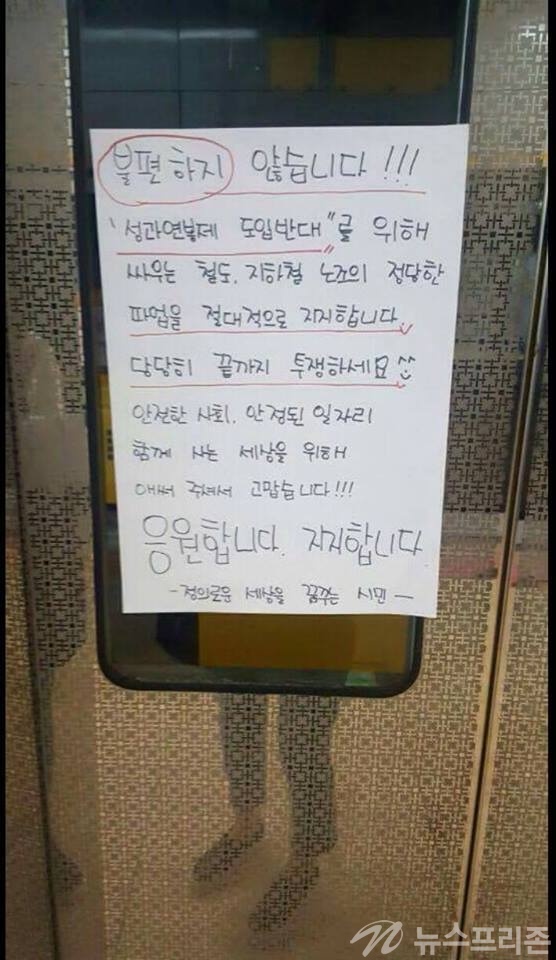 불편하지 않습니다!!!
"성과연봉제 도입반대"를 위해
싸우는 철도, 지하철 노조의 정당한
파업을 절대적으로 지지합니다
당당히 끝까지 투쟁하세요^^
안전한 사회, 안정된 일자리
함께 사는 세상을 위해
애써 주셔서 고맙습니다!!!
응원합니다. 지지합니다
- 정의로운 세상을 꿈꾸는 시민 -
뉴스프리존